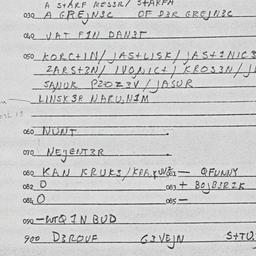 A STARF KESSR/ STARFA
030 A GREJNƷC OF DƷR GREJNƷC
040 VAT FIN DANƷT
050 KORCTIN/ JASTLISK/ JASTINICS
ƷARSTƷN/ IVONICTI KROSƷN/
SANUK PƷOZƷV / JASUR
LINSKƷR NARU.NIM
060 NUNT
070 NEJENTƷR
080 KAN KRUKS/ 081 — QFUNNY
082 O 083 + BOJBƷRƷK
084 O 085 —
090 — WTQ IN BUD
900 DƷROUF GƷVEJN STU